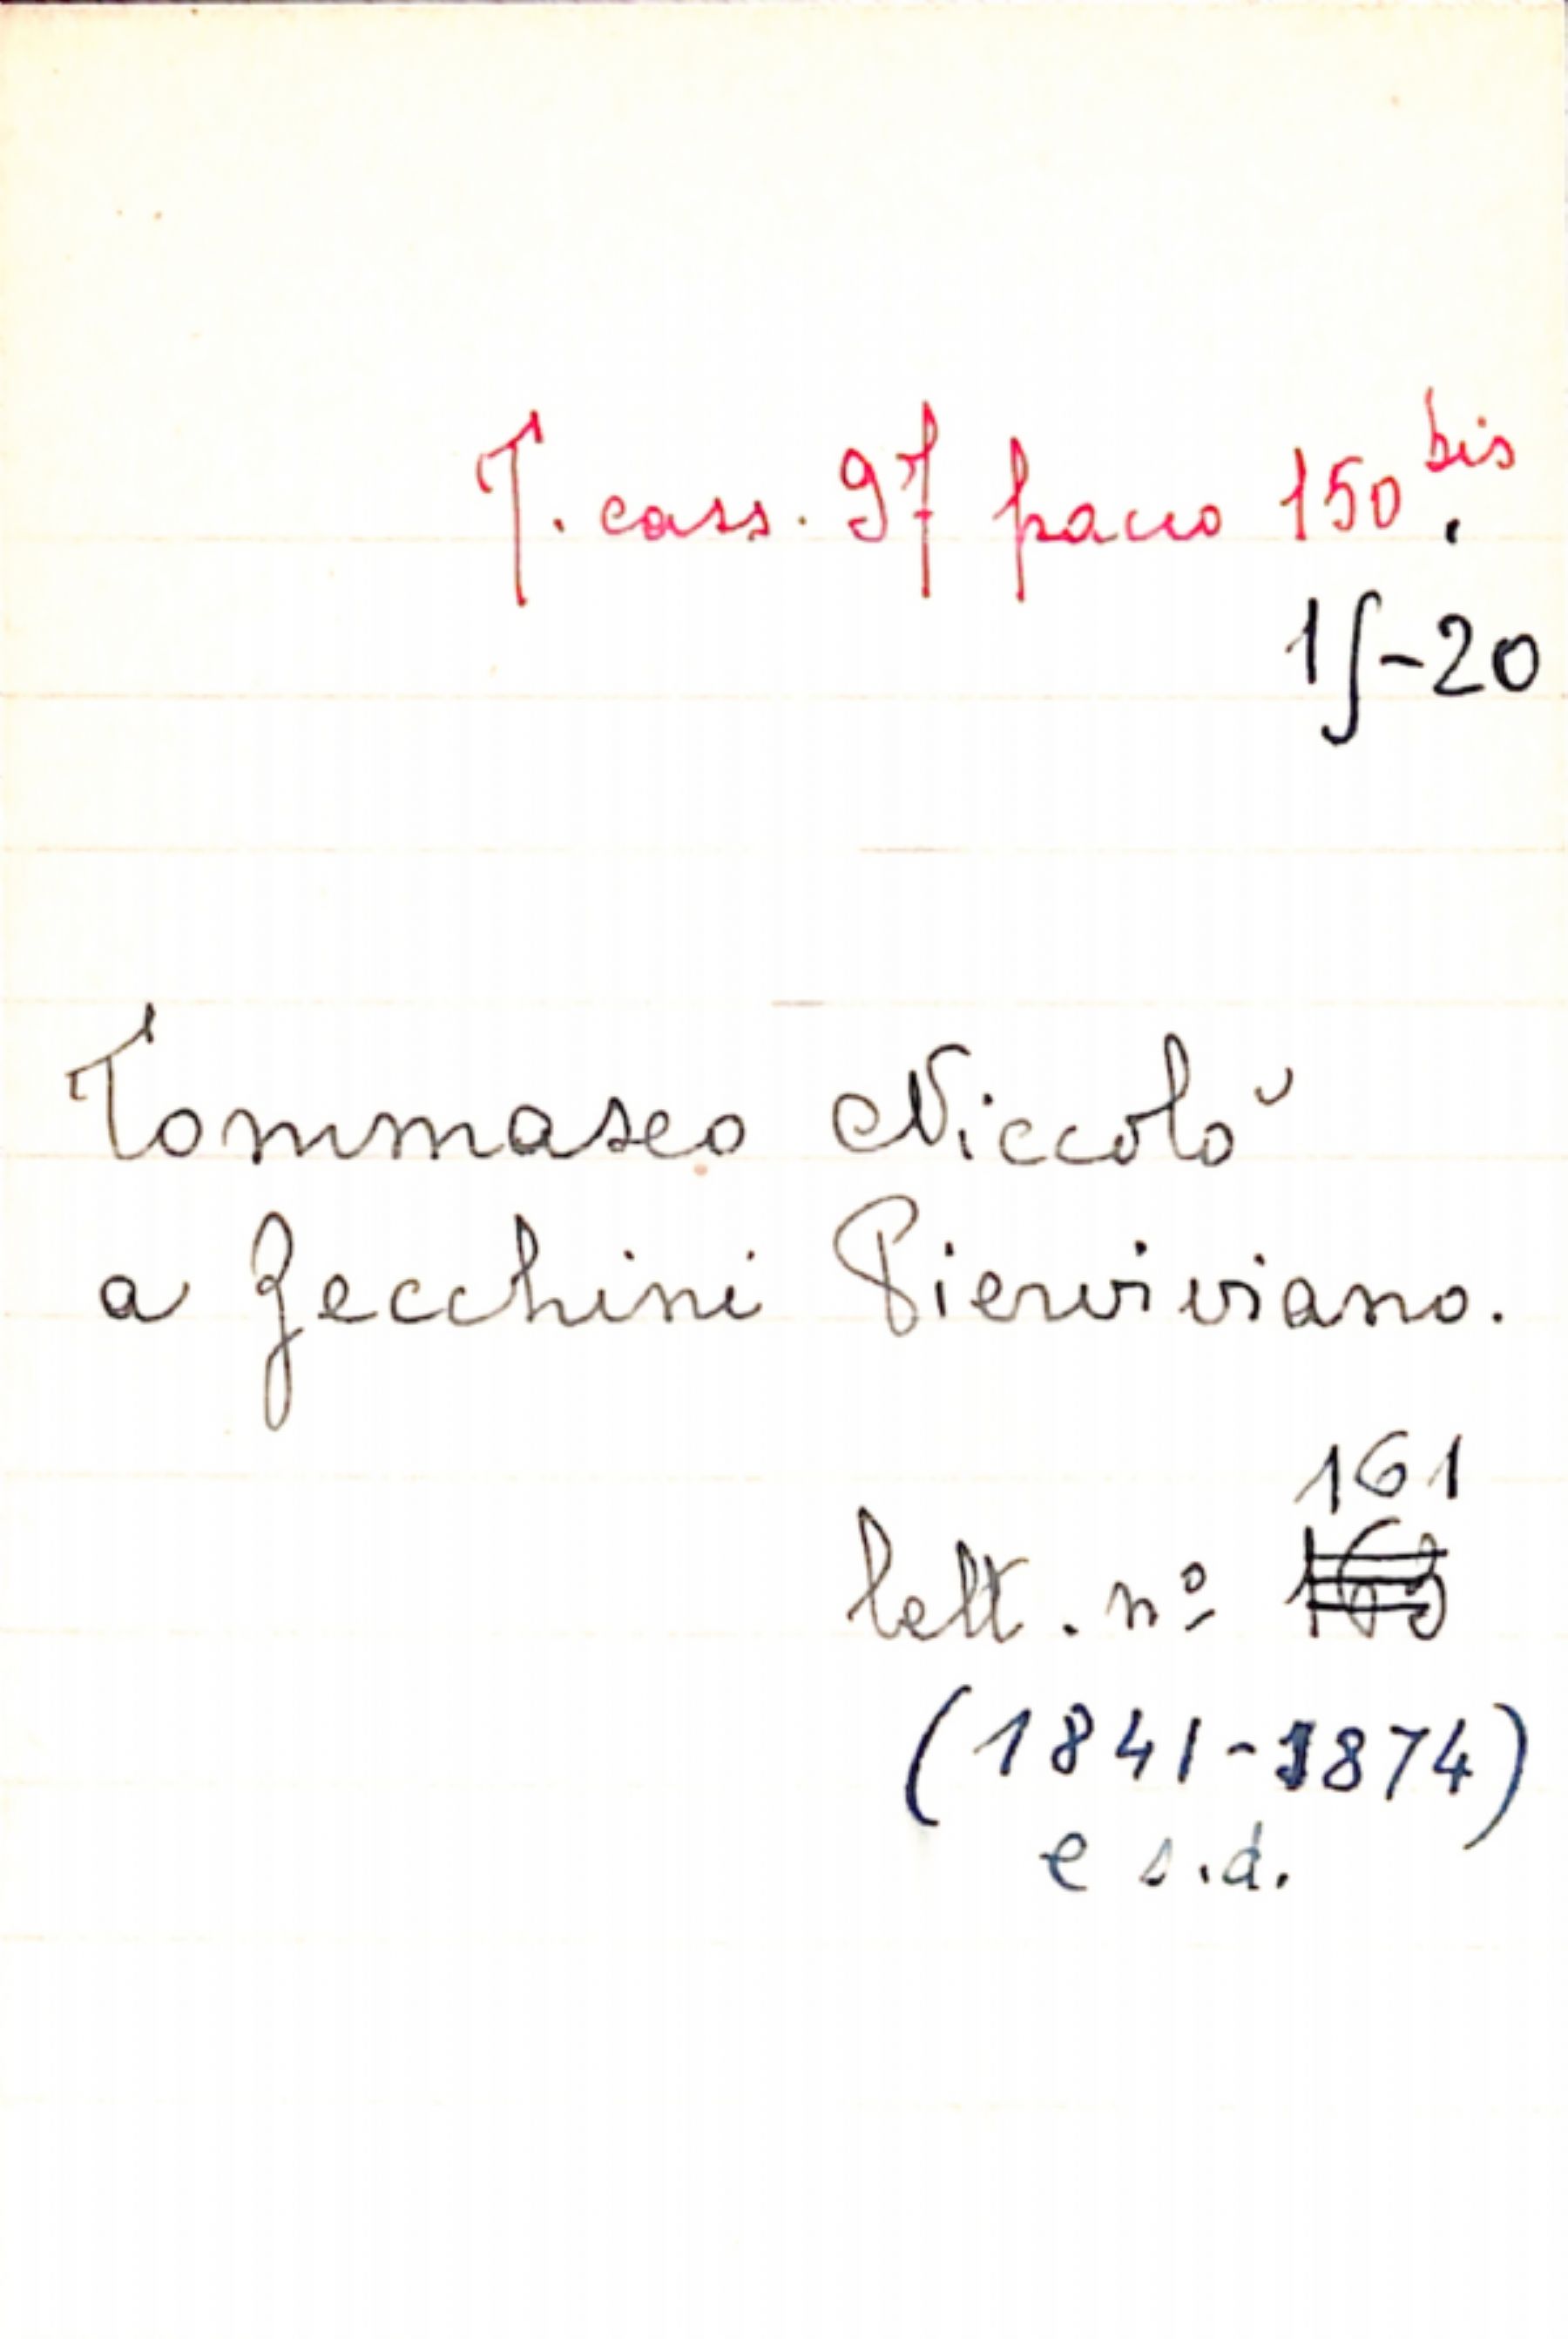 T. cass. 97 pacco 150 bis.
15-20
Tommaseo Niccolò
a Zecchini Pierviviano.
161
lett. nº
(1841-1874)
e s.d.